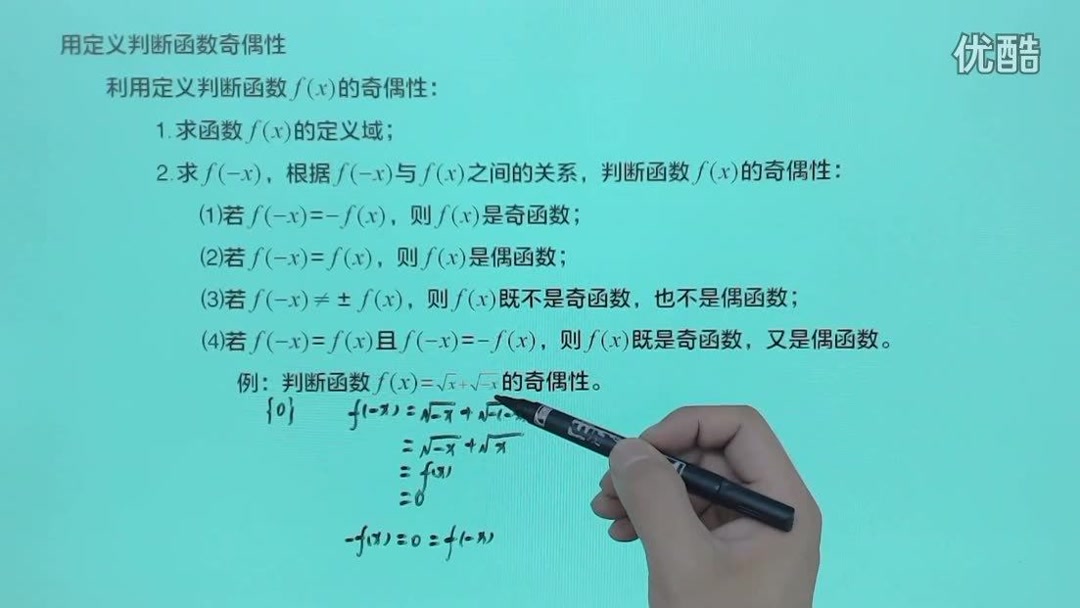 用定义判断函数奇偶性
优酷
利用定义判断函数 f(x)的奇偶性：
1.求函数 f(x)的定义域；
2.求 f(-x)，根据 f(-x)与 f(x)之间的关系，判断函数 f(x)的奇偶性：
⑴若 f(-x)=-f(x)，则 f(x)是奇函数；
⑵若 f(-x)=f(x)，则 f(x)是偶函数；
⑶若 f(-x)≠± f(x)，则 f(x)既不是奇函数，也不是偶函数；
⑷若 f(-x)=f(x)且 f(-x)=-f(x)，则 f(x)既是奇函数，又是偶函数。
例：判断函数 f(x)=√x+√-x的奇偶性。
{0} f(-x)=√-x+√-(-x
=√-x+√x
=f(x)
=0
-f(x)=0=f(-x)